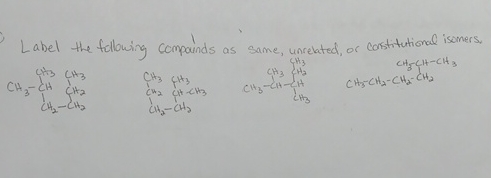 Label the following compounds as same, unrelated, or constitutional isomers.
CH3 CH3 CH3 CH3 CH3 CH3 CH2-CH-CH3
CH3-CH CH2 CH2 CH-CH3 CH3-CH-CH CH3-CH2-CH2-CH2
CH2-CH2 CH2-CH2 CH3